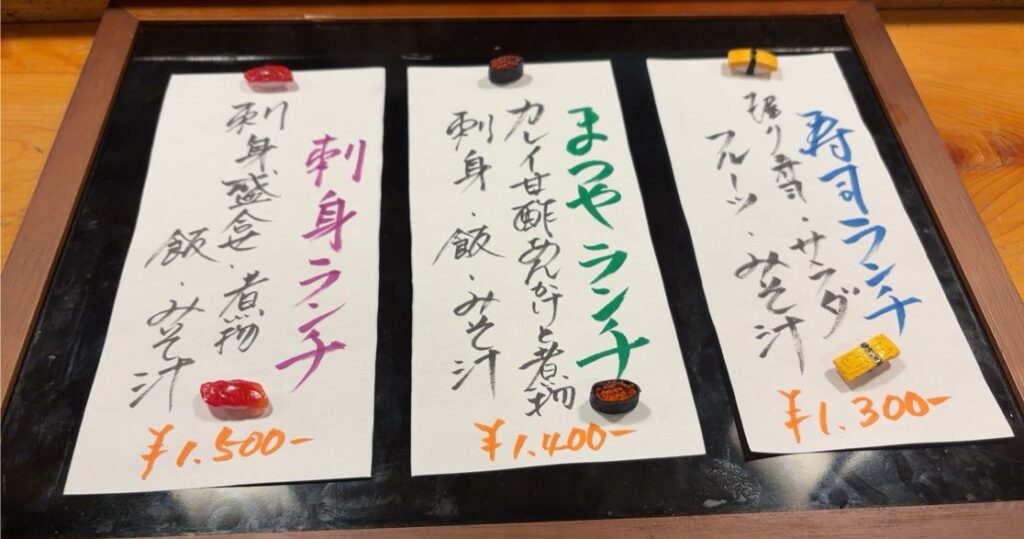 寿司ランチ
握り寿司・サラダ
フルーツ・みそ汁
¥1.300-
まつやランチ
カレイ甘酢あんかけと煮物
刺身・飯・みそ汁
¥1.400-
刺身ランチ
刺身盛合せ・煮物
飯・みそ汁
¥1.500-